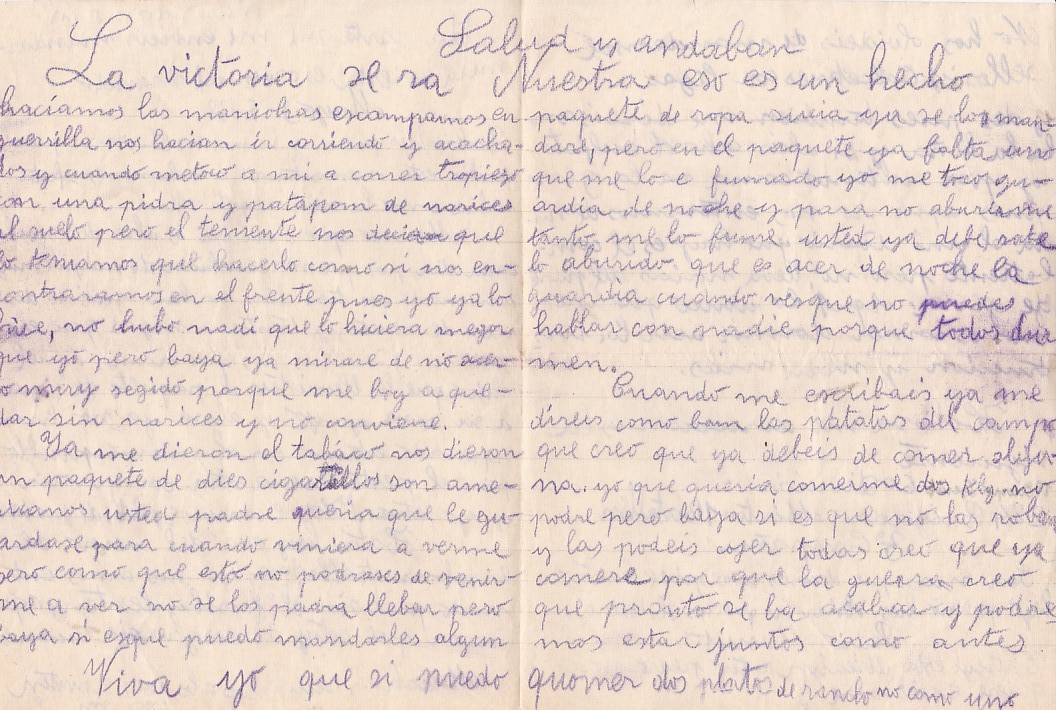 Salud y andaban
La victoria se ra Nuestra eso es un hecho
haciamos las maniobras escampamos en
guerrilla nos hacian ir corriendo y acacha-
dos y cuando me toco a mi a correr tropiezo
con una pidra y patapam de narices
al suelo pero el teniente nos decian que
lo teniamos que hacerlo como si nos en-
contraramos en el frente pues yo ya lo
hice, no hubo nadi que lo hiciera megor
que yo pero baya ya mirare de no acer-
o muy segido porque me boy a que-
dar sin narices y no conviene.
Ya me dieron el tabaco nos dieron
un paquete de dies cigarillos son ame-
ricanos usted padre queria que le gu-
ardase para cuando viniera a verme
pero como que esto no podra ses de venir-
me a ver no se los padra llebar pero
baya si esque puedo mandarles algun
Viva yo que si puedo
paquete de ropa sucia ya se los man-
dare, pero en el paquete ya falta uno
que me lo e fumado yo me toco gu-
ardia de noche y para no aburirme
tanto me lo fume usted ya debe sabe
lo aburido que es acer de noche la
guardia cuando vesque no puedes
hablar con nadie porque todos dur
men.
Cuando me escribais ya me
direis como bam las patatas del campo
que creo que ya debeis de comer algu-
na. yo que queria comerme dos Klg. no
podre pero baya si es que no las roban
y las podeis cojer todas creo que ya
comere por que la guerra creo
que pronto se ba acabar y podre
mos estar juntos como antes
quomer dos platos de rancho no como uno